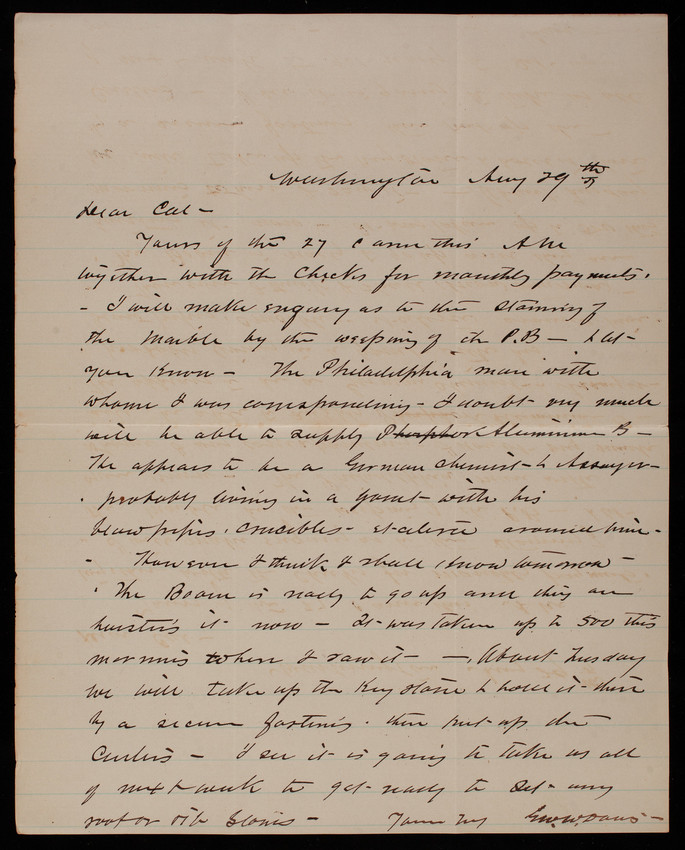 Washington Aug 29th
Dear Col -
Yours of the 27 came this A.M.
together with the checks for monthly payments.
- I will make enquiry as to the staining of
the marble by the weeping of the P.B - & let
you know - The Philadelphia man with
whom I was corresponding - I doubt very much
will be able to supply Phosphor Aluminium B -
He appears to be a German chemist & Assayer -
probably living in a garret with his
blow pipes, crucibles - et cetera around him -
- However I think I shall know tomorrow -
The Boom is ready to go up and they are
hoisting it now - It was taken up to 500 this
morning when I saw it - - About Tuesday
we will take up the Key stone & hold it there
by a secure fastening. then put up the
Centers - I see it is going to take us all
of next week to get ready to set any
roof or rib stones - Yours Truly Geo. W. Davis -